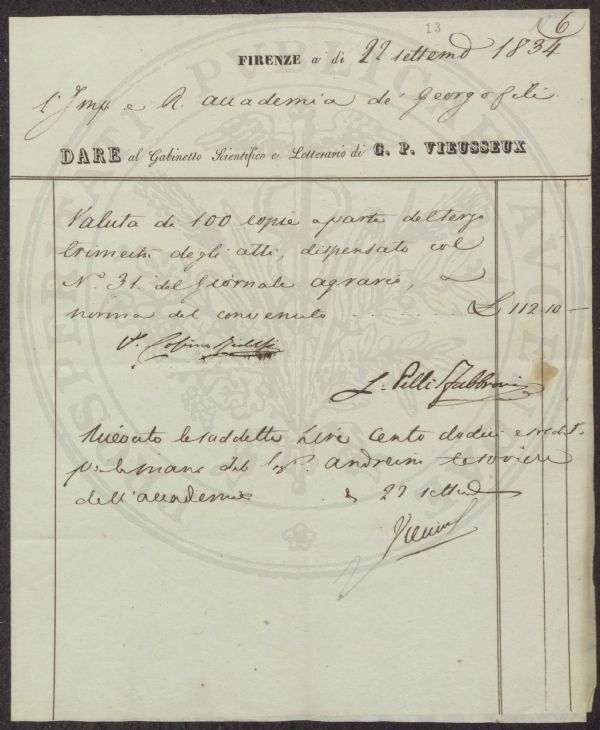 13
N 6
FIRENZE a di 22 settemb 1834
L'Imp e R. accademia de' Georgofili
DARE al Gabinetto Scientifico e Letterario di G. P. VIEUSSEUX
Valuta di 100 copie a parte del terzo
trimestre degli atti, dispensato col
N.º 31. del Giornale agrario, a
norma del convenuto .......... £ 112.10 —
V. Cosimo Ridolfi
L. Pelli Fabbroni
Ricevuto le suddette Lire cento dodici e
p. le mani del Sig. Andreini tesoriere
dell'accademia 22 settemb
PROSPERITATI PUBLICAE AUGENDAE